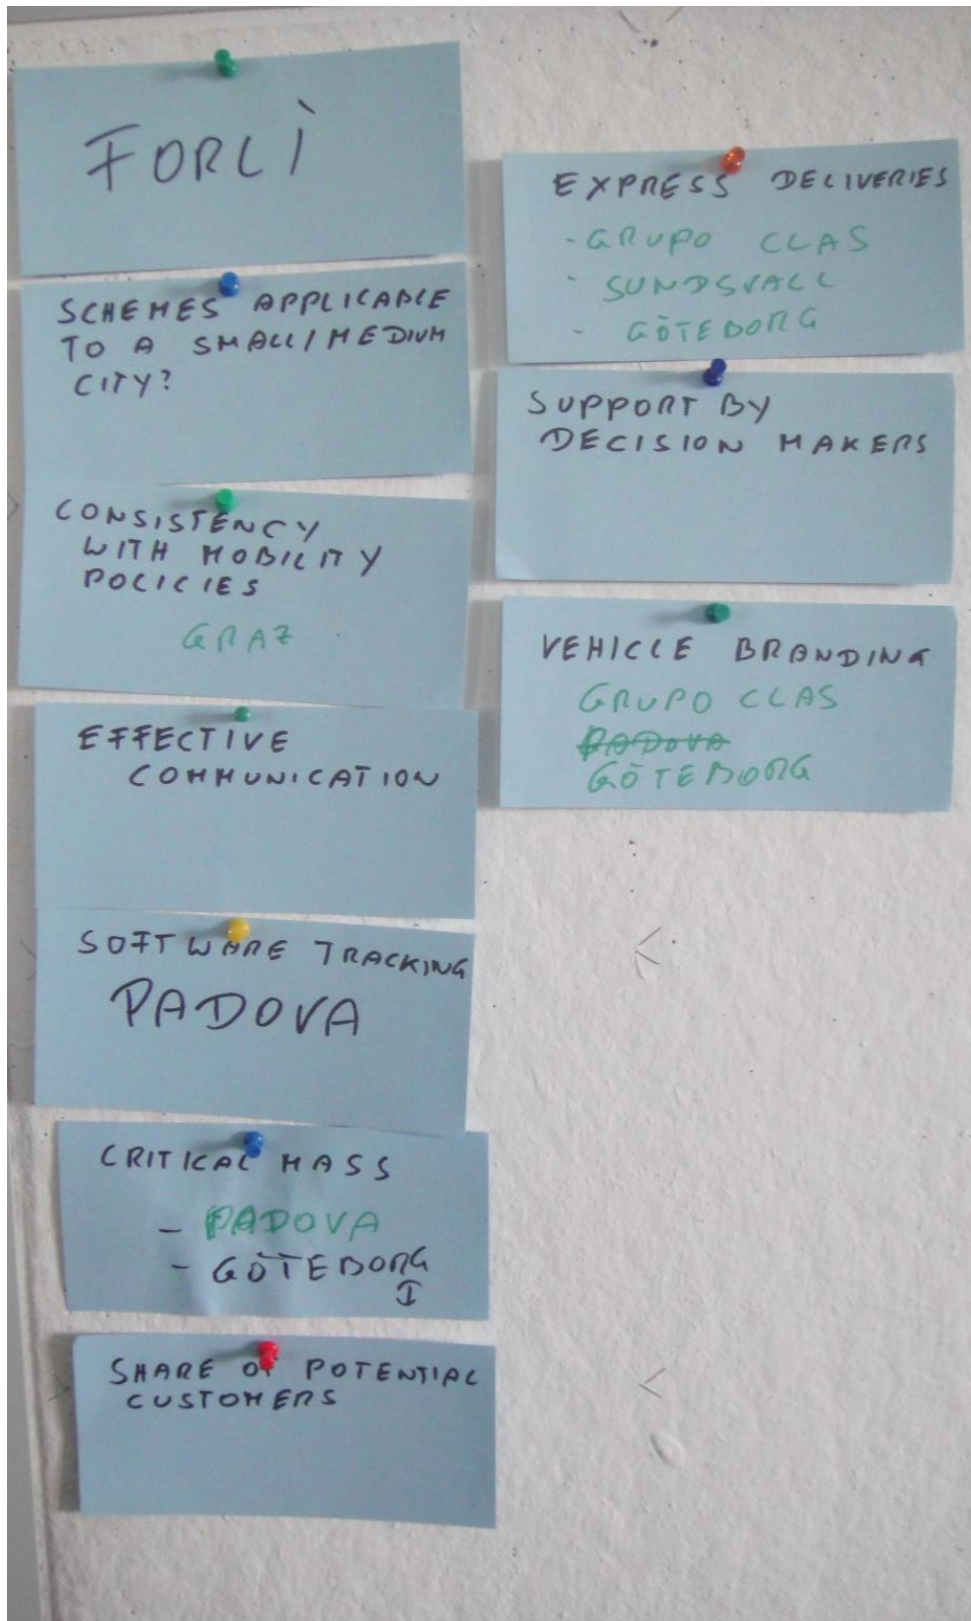 FORLÌ
SCHEMES APPLICABLE
TO A SMALL/MEDIUM
CITY?
CONSISTENCY
WITH MOBILITY
POLICIES
GRAZ
EFFECTIVE
COMMUNICATION
SOFTWARE TRACKING
PADOVA
CRITICAL MASS
- PADOVA
- GÖTEBORG
I
SHARE OF POTENTIAL
CUSTOMERS
EXPRESS DELIVERIES
- GRUPO CLAS
- SUNDSVALL
- GÖTEBORG
SUPPORT BY
DECISION MAKERS
VEHICLE BRANDING
GRUPO CLAS
PADOVA
GÖTEBORG